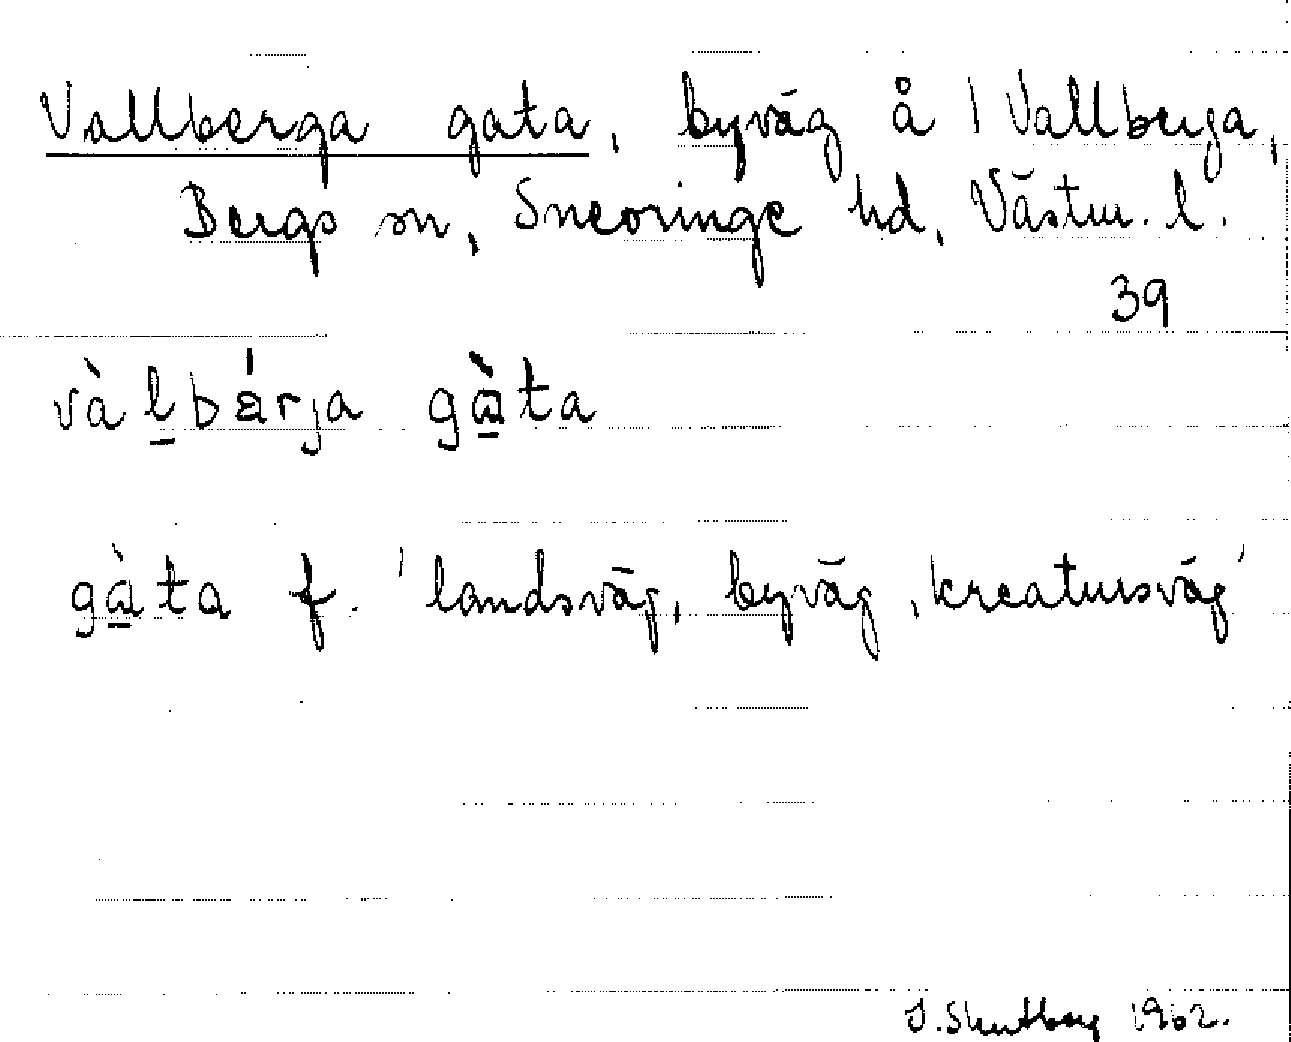 Vallberga gata, byväg å 1 Vallberga,
Bergs sn, Snevringe hd, Västm. l.
39
và l̲bárja gà̲ta
gà̲ta f. 'landsväg, byväg, kreatursväg'
1962.